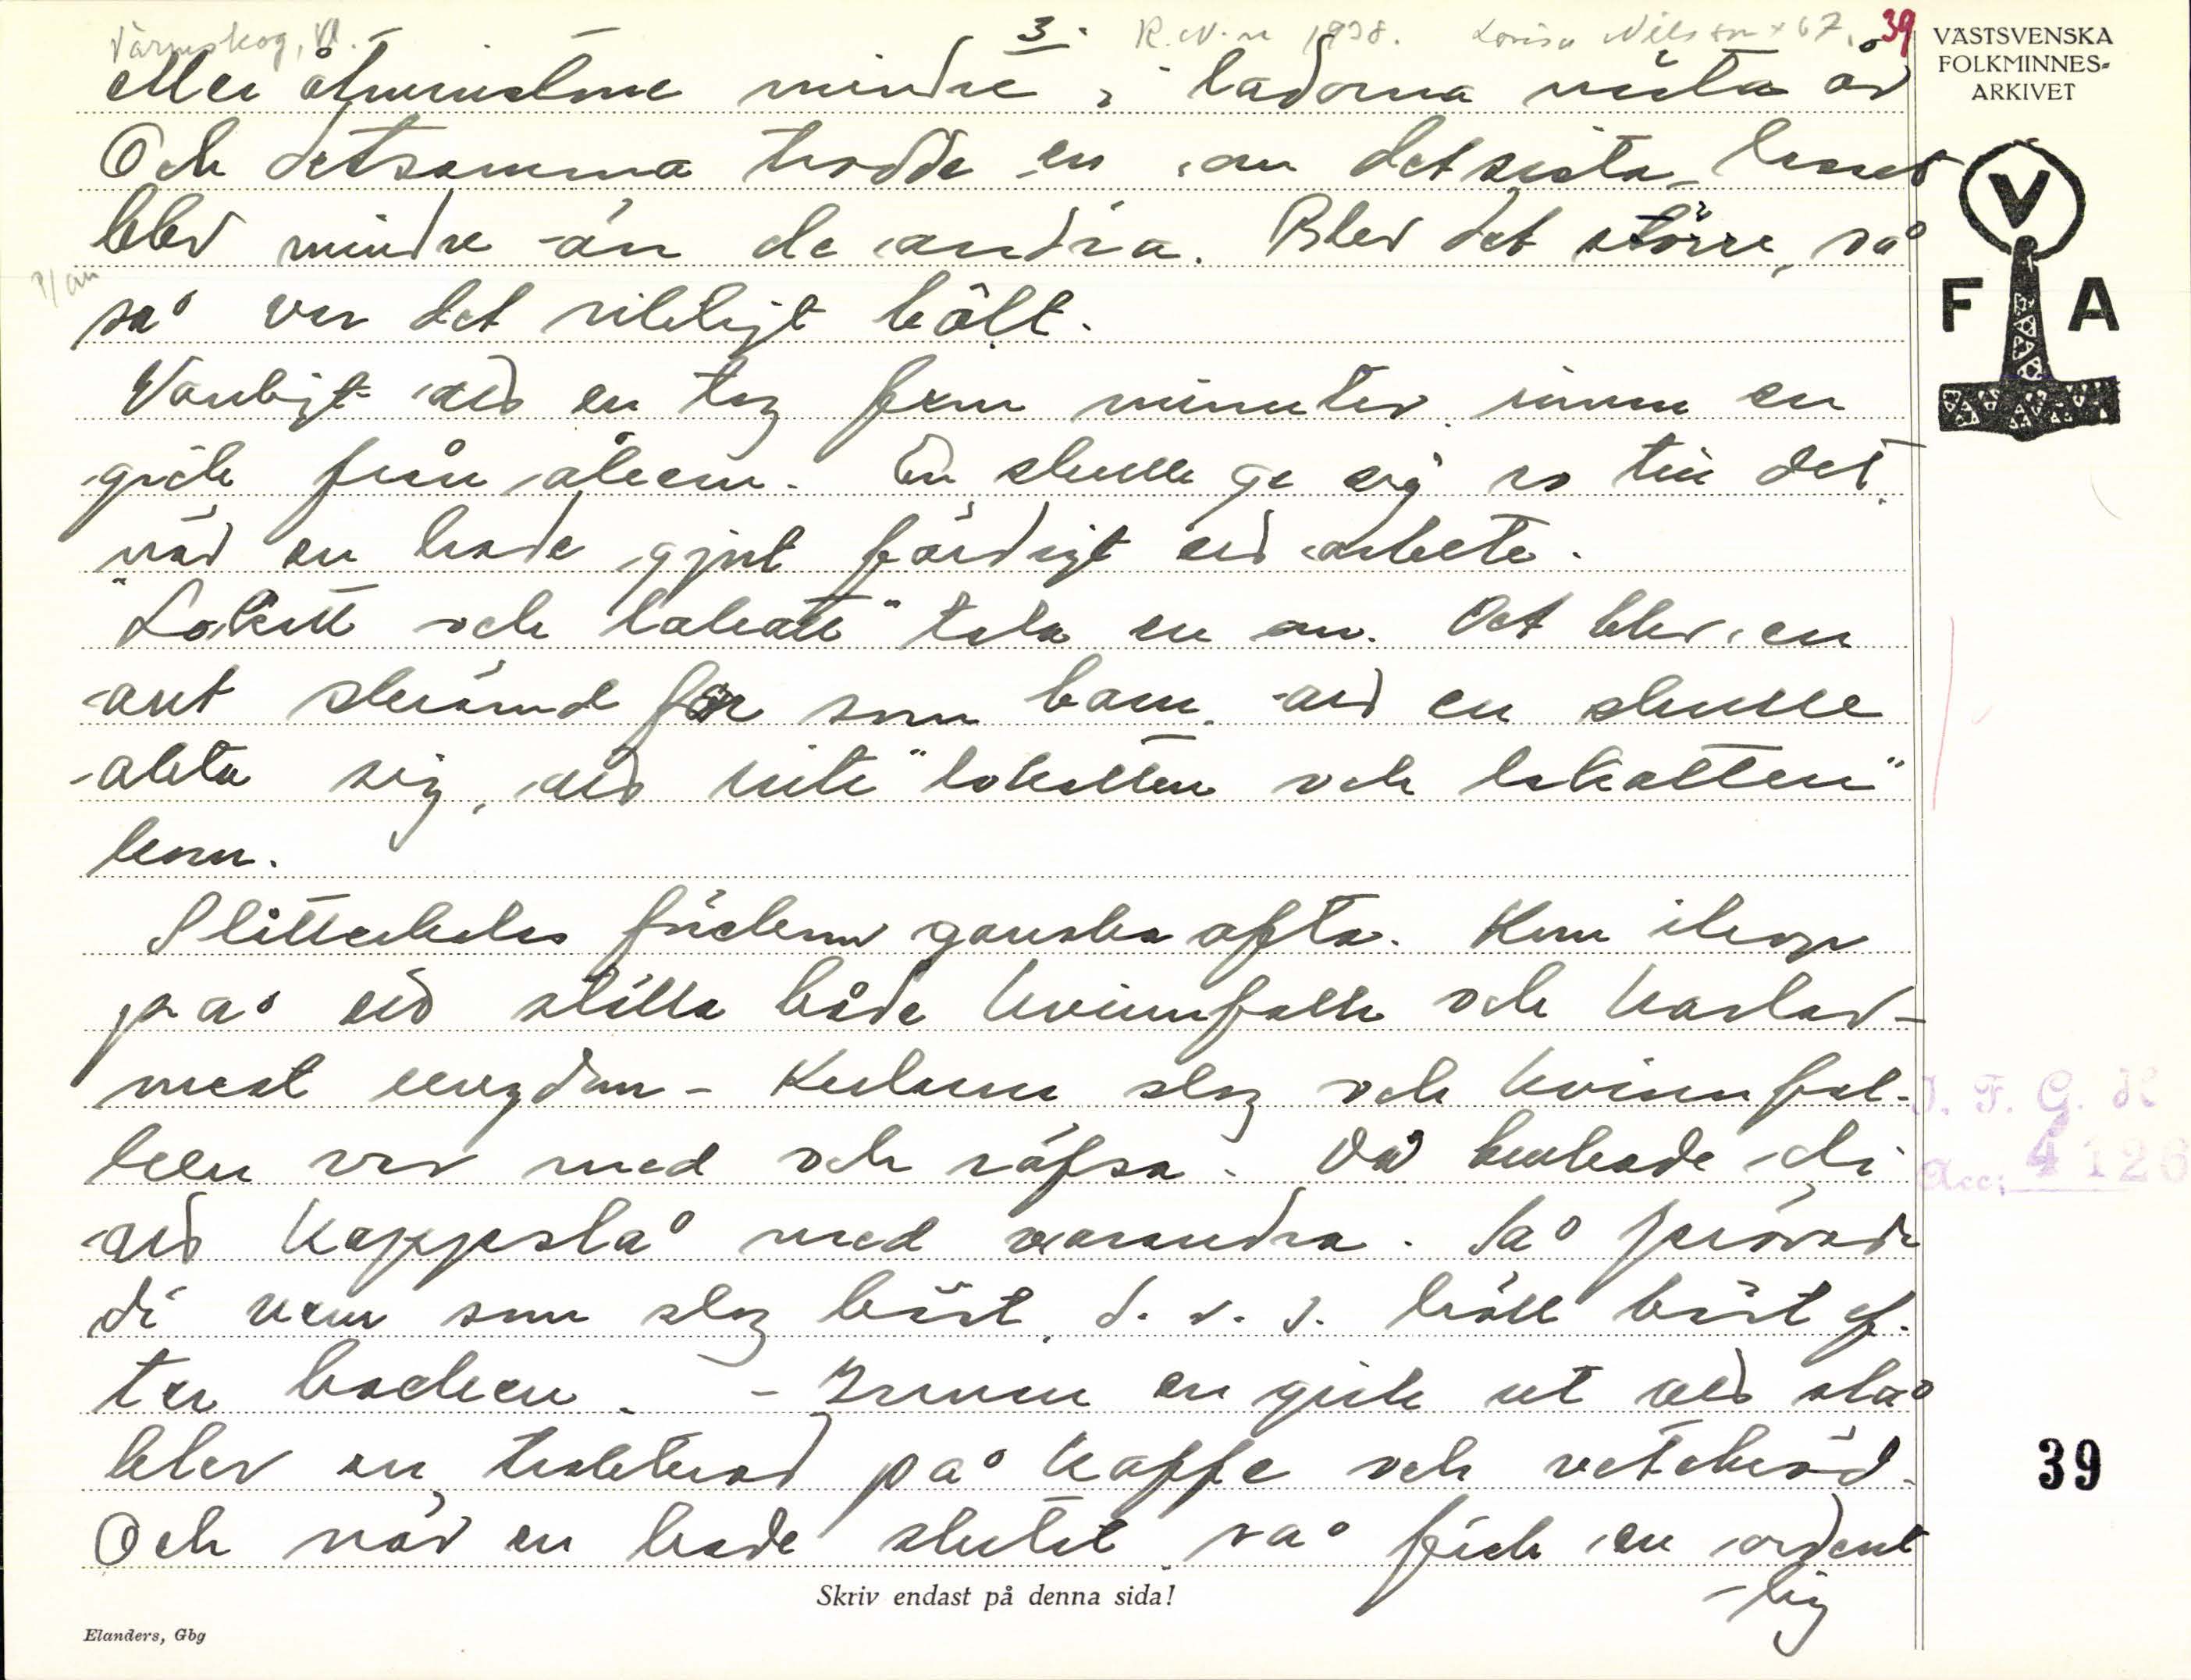 Värmskog, Vl. 3. R.N-n 1928. Lovisa Nilsson * 67. 39
eller åtminstone mindre i ladorna nästa år
Och detsamma trodde en om det sista lasset
blev mindre än de andra. Blev det större, så
så var det riktigt bält.
Vanligt att en tog fem minuter innan en
gick från åkern. En skulle ge sig ro till det
när en hade gjort färdigt ett arbete.
"Lokatt och lakatt" tala en om. Det blev en
allt skrämd för som barn att en skulle
akta sig, att inte "lokatten och lakatten"
kom.
Slåtterkalas förekom ganska ofta. Kom ihop
på att slåtta både kvinnfolk och karlar-
mest ungdom - Karlarna slog och kvinnfol-
ken var med och räfsa. Då brukade di
att kappslå med varandra. Så prövade
di vem som slog bäst, d.v.s. höll bäst ef-
ter backen. - Innan en gick ut att slå
blev en trakterad på kaffe och vetebröd.
Och när en hade slutat så fick en ordent
-lig
VÄSTSVENSKA
FOLKMINNES-
ARKIVET
V
F A
I. F. G. H
Acc: 4126
39
Skriv endast på denna sida!
Elanders, Gbg